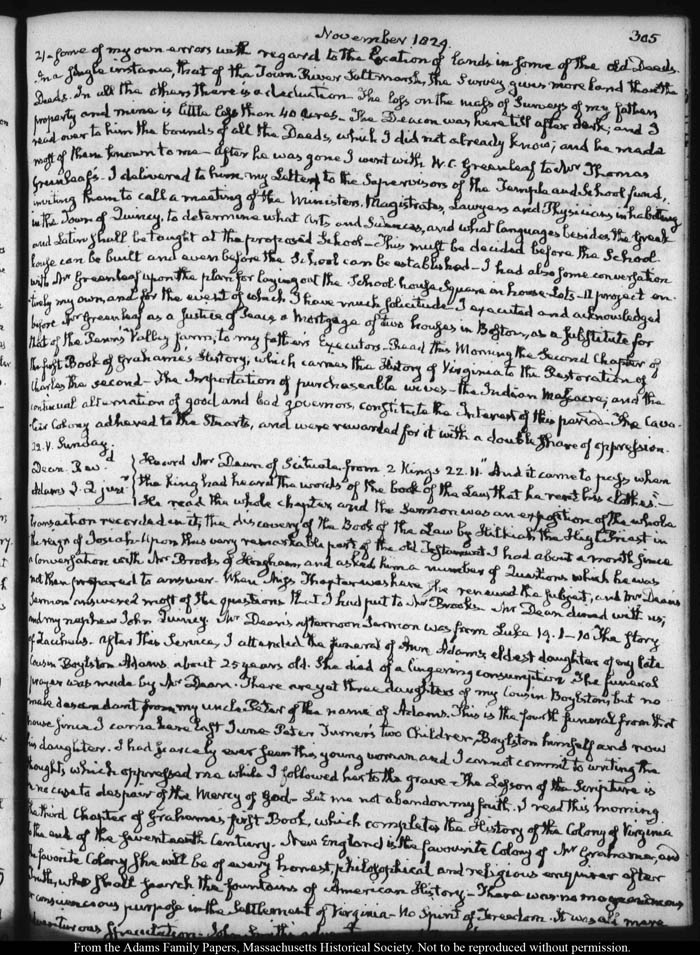 November 1829.
305
21 — some of my own errors with regard to the location of lands in some of the old Deeds.
In a single instance, that of the Town River Saltmarsh, the Survey gives more land than the
Deeds. In all the others there is a deduction — The loss on the mass of Surveys of my fathers
property and mine is little less than 40 acres — The Deacon was here till after dark; and I
read over to him the bounds of all the Deeds, which I did not already know; and he made
most of them known to me — After he was gone I went with W. C. Greenleaf to Mr Thomas
Greenleaf's — I delivered to him my Letter to the Supervisors of the Temple and School fund,
inviting them to call a meeting of the Ministers, Magistrates, Lawyers and Physicians inhabiting
in the Town of Quincy, to determine what Arts and Sciences, and what languages besides the Greek
and Latin shall be taught at the proposed School — This must be decided before the School
house can be built and even before the School can be established — I had also some conversation
with Mr Greenleaf upon the plan for laying out the School-house Square in house-Lots — A project en-
tirely my own, and for the event of which I have much solicitude — I executed and acknowledged
before Mr Greenleaf as a Justice of Peace a Mortgage of two houses in Boston, as a substitute for
that of the Penns Valley farm, to my fathers Executors — Read this Morning the Second Chapter of
the first Book of Grahame's History, which carries the History of Virginia to the Restoration of
Charles the second — The Importation of purchaseable wives — the Indian Massacre; and the
continual alternation of good and bad governors, constitute the Interest of this period — The Cava-
-lier Colony adhered to the Stuarts, and were rewarded for it with a double share of oppression.
22. V. Sunday.
Dean. Revd
Heard Mr Dean of Scituate from 2 Kings 22. 11. "And it came to pass when
Adams
the King had heard the words of the book of the Law, that he rent his clothes" —
He read the whole chapter, and the Sermon was an exposition of the whole
transaction recorded in it; the discovery of the Book of the Law by Hilkiah the High Priest in
the reign of Josiah — Upon this very remarkable part of the old Testament I had about a month since
a Conversation with Mr Brooks of Hingham, and asked him a number of Questions which he was
not then prepared to answer. When he renewed the subject, and Mr Dean's
Sermon answered most of the questions that I had put to Mr Brooks. Mr Dean dined with us;
and my nephew John Quincy. Mr Dean's afternoon Sermon was from Luke 19. 1–10 The Story
of Zacheus. After this Service, I attended the funeral of Ann Adams, eldest daughter of my late
Cousin Boylston Adams about 25 years old. She died of a lingering consumption. The funeral
prayer was made by Mr Dean. There are yet three daughters of my Cousin Boylston, but no
male descendant from my uncle Peter of the name of Adams. This is the fourth funeral from that
house since I came here last June. Peter Turner's two Children, Boylston himself and now
his daughter. I had scarcely ever seen this young woman, and I cannot commit to writing the
thoughts which oppressed me while I followed her to the grave — The Lesson of the Scripture is
in no case to despair of the Mercy of God — Let me not abandon my faith. I read this morning
the third Chapter of Grahames first Book, which completes the History of the Colony of Virginia
to the end of the seventeenth Century. New England is the favourite Colony of Mr Grahame, and
the favorite Colony she will be of every honest, philosophical and religious enquirer after
truth, who shall search the fountains of American History — There was no magnanimous
or conscientious purpose in the Settlement of Virginia — No Spirit of Freedom. It was all mere
adventurous Speculation. John Smith
From the Adams Family Papers, Massachusetts Historical Society. Not to be reproduced without permission.